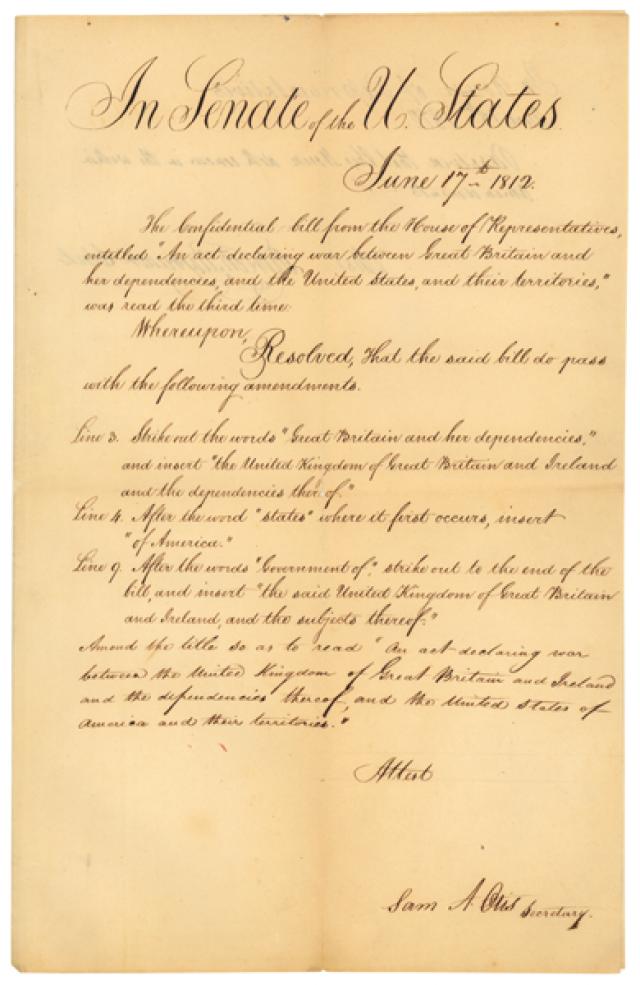 In Senate of the U. States.
June 17th 1812.
The Confidential bill from the House of Representatives,
entitled "An act declaring war between Great Britain and
her dependencies, and the United States, and their territories,"
was read the third time.
Whereupon,
Resolved, That the said bill do pass
with the following amendments.
Line 3. Strike out the words "Great Britain and her dependencies,"
and insert "the United Kingdom of Great Britain and Ireland
and the dependencies thereof."
Line 4. After the word "states" where it first occurs, insert
"of America."
Line 9. After the words "Government of," strike out to the end of the
bill, and insert "the said United Kingdom of Great Britain
and Ireland, and the subjects thereof."
Amend the title so as to read "An act declaring war
between the United Kingdom of Great Britain and Ireland
and the dependencies thereof, and the United States of
America and their territories."
Attest
Sam A. Otis Secretary.